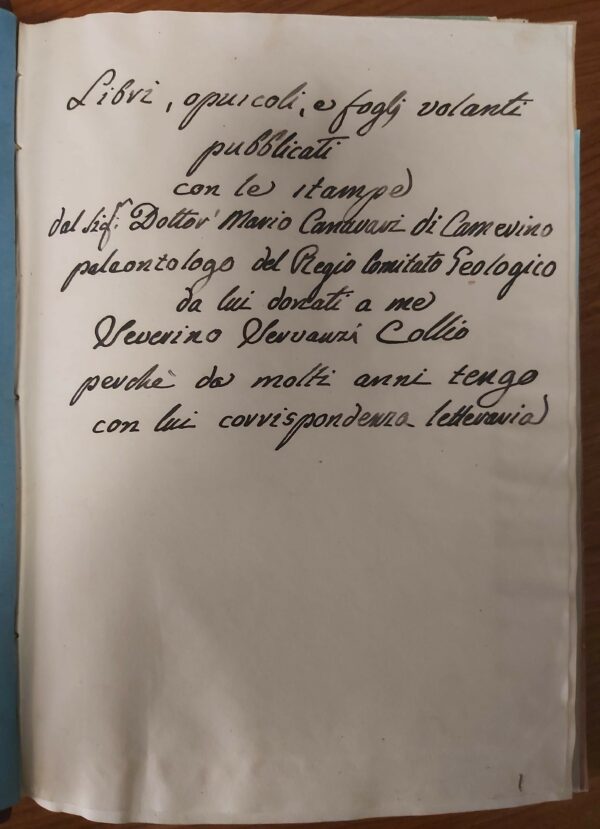 Libri, opuscoli, e foglj volanti
pubblicati
con le stampe
dal Sig.r Dottor Mario Canavari di Camerino
paleontologo del Regio Comitato Geologico
da lui donati a me
Severino Servanzi Collio
perchè da molti anni tengo
con lui corrispondenza letteraria
1